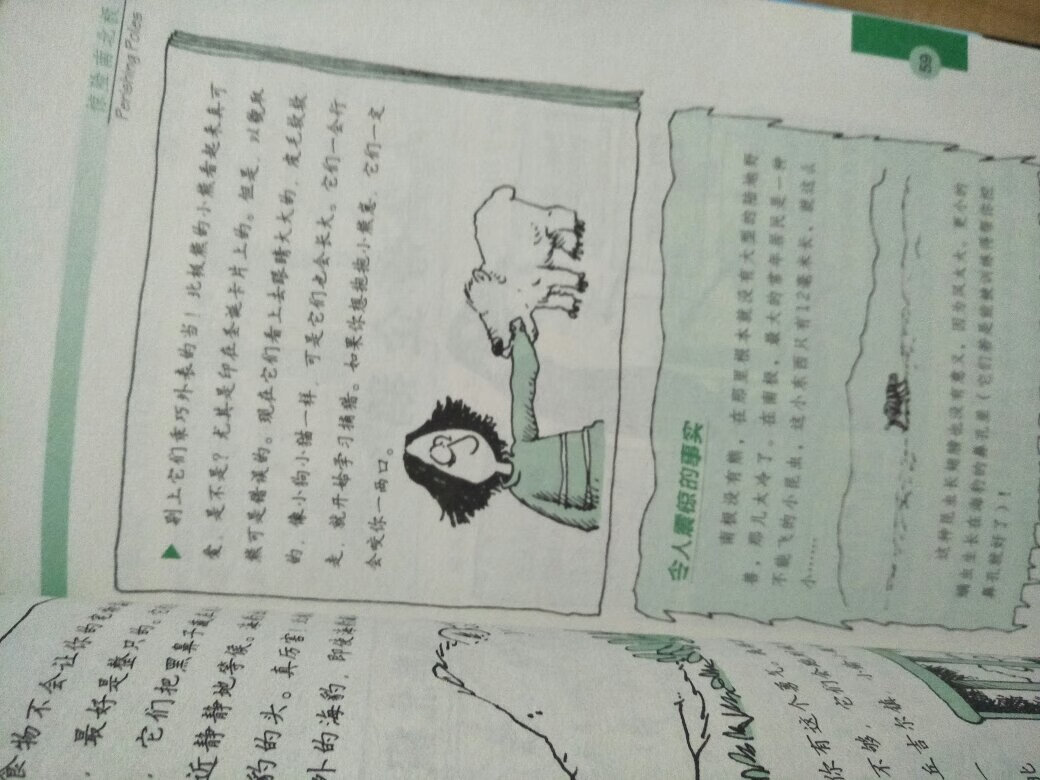 Perishing Poles
59
别上它们乖巧外表的当！北极熊的小熊看起来真可
爱，是不是？尤其是印在圣诞卡片上的。但是，以貌取
熊可是错误的。现在它们看上去眼睛大大的，皮毛软软
的，像小狗小猫一样，可是它们也会长大。它们一会行
走，就开始学习捕猎。如果你想抱抱小熊崽，它们一定
会咬你一两口。
令人震惊的事实
南极没有熊，在那里根本就没有大型的陆地野
兽，那儿太冷了。在南极，最大的常年居民是一种
不能飞的小昆虫，这小东西只有12毫米长，就这么
小……
这种昆虫长翅膀也没有意义，因为风太大。更小的
螨虫生长在海豹的鼻孔里（它们够是能被训练得帮你挖
鼻孔就好了）！
食物不会让你的
最好是整只的。
它们把黑鼻子
近静静地等候。
豹的头。真厉害！
外的海豹，即使
你有这个勇气，
不够，它们